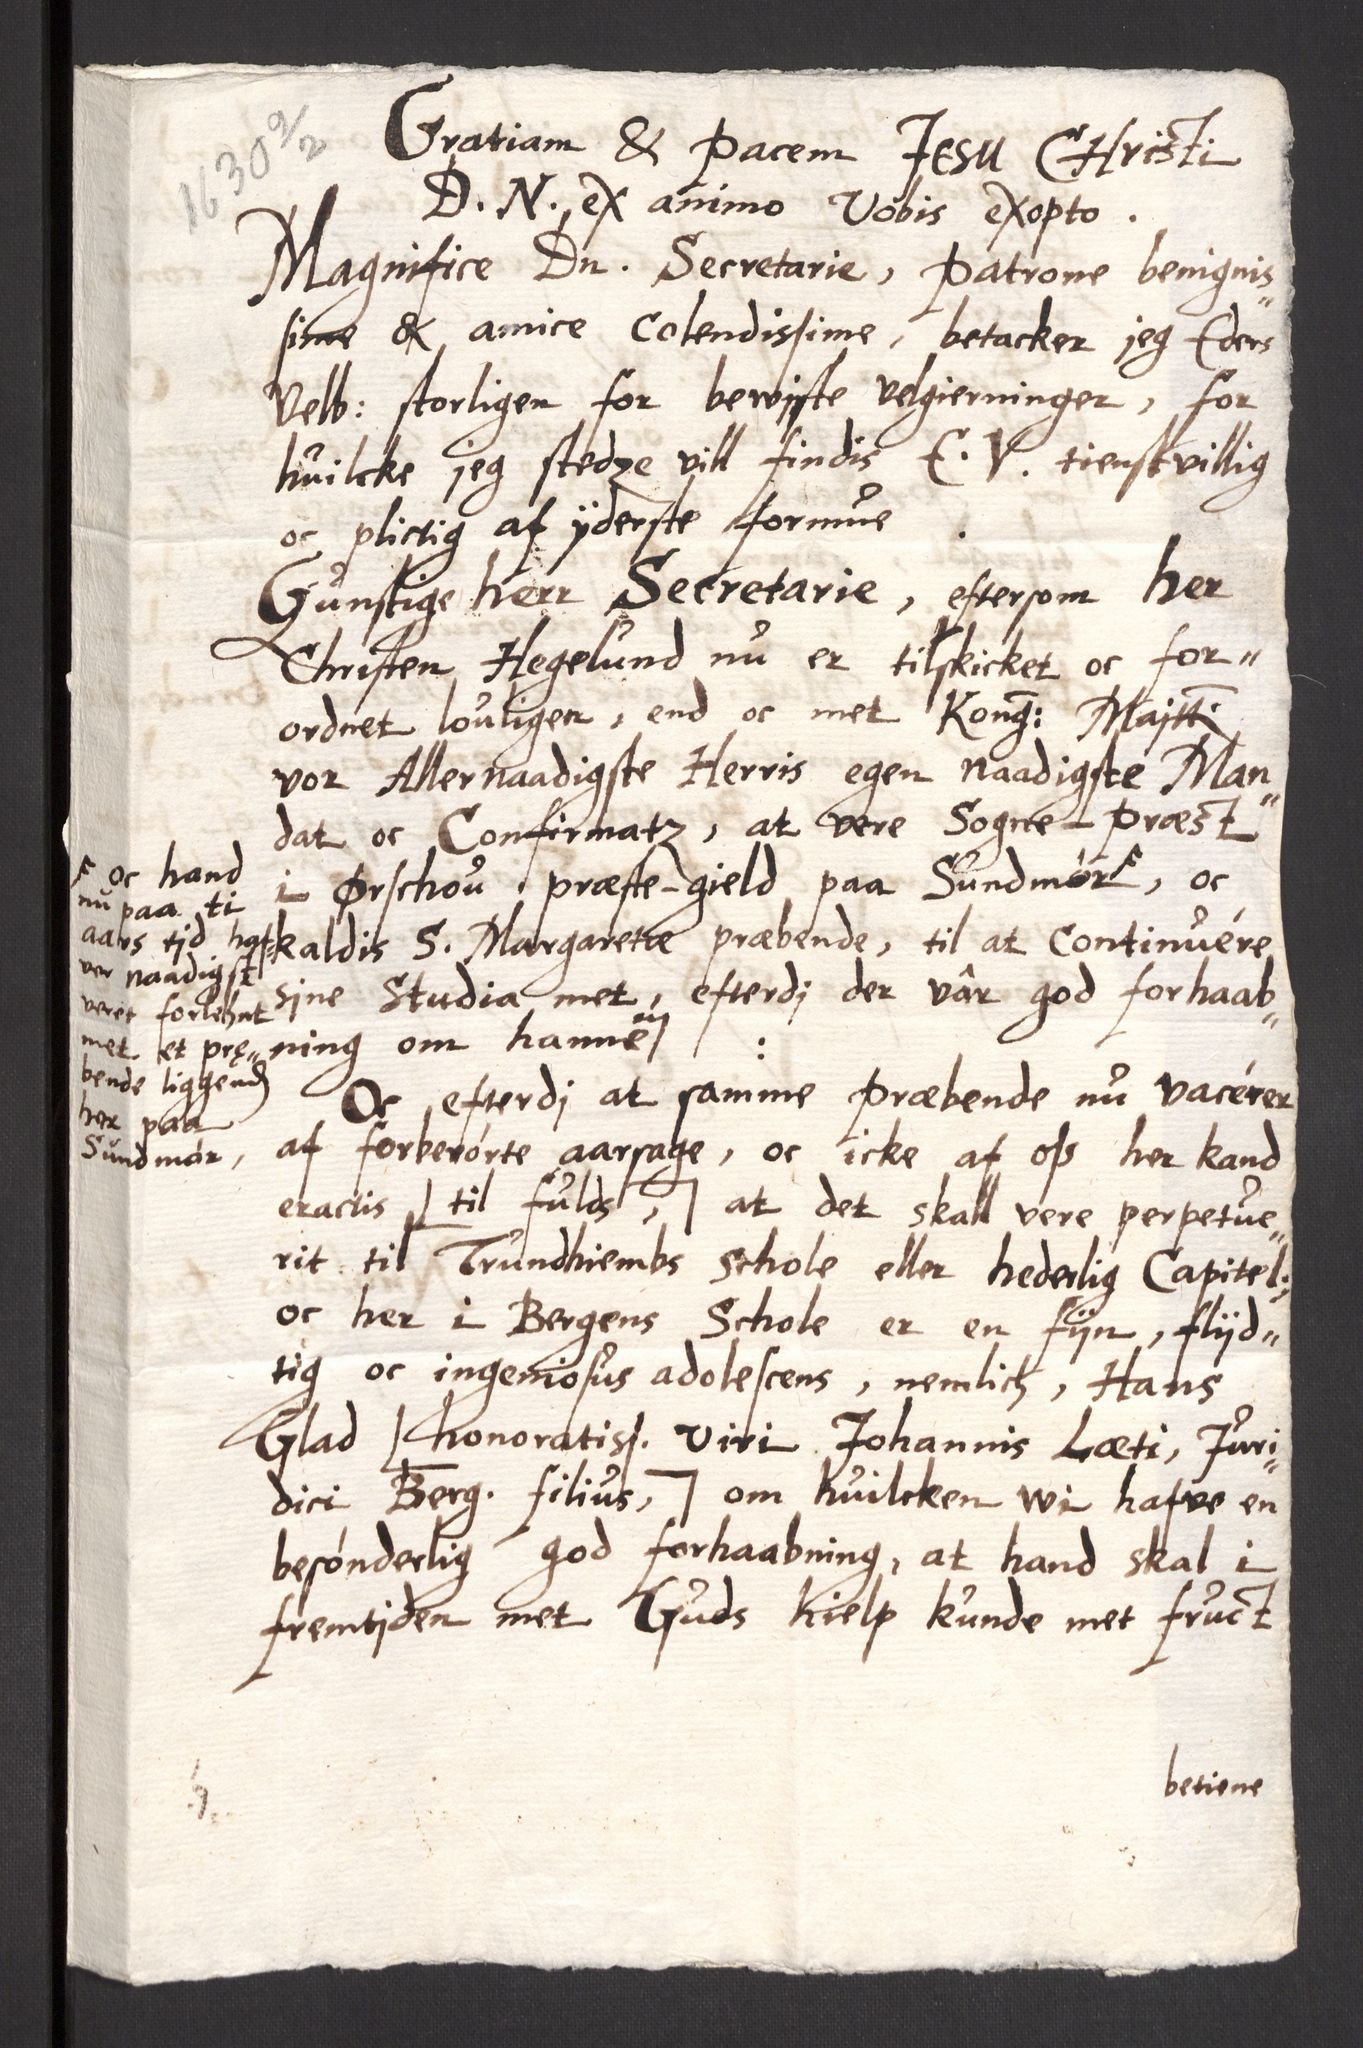 1630 9/2
Gratiam & Pacem JESU CHristi
D. N. ex animo Vobis exopto.
Magnifice Dn. Secretarie, Patrone benignis„
sime & amice Colendissime, betacker jeg Eders
Velb: storligen for bewjste velgierninger, for
huilcke jeg stedze vill findis E. V. tienstvillig
oc plictig af ÿderste formue.
Gunstige herr Secretarie, eftersom her
Christen Hegelund nu er tilskicket oc for„
ordnet louligen, end oc met Kong: Majtt:
vor Allernaadigste Herris egen naadigste Man„
dat oc Confirmatz, at vere Sogne-Præst
i Ørschou præste-gield paa Sundmör F, oc
kaldis S. Margaretæ præbende, til at Continuére
sjne Studia met, efterdj der vâr god forhaab„
ning om hannem :
F oc hand
nu paa ti
aars tjd haf„
ver naadigst
veret forlehnt
met et præ„
bende liggend
her paa
Sundmör,
Oc efterdj at samme Præbende nu vacérer
af forberörte aarsage, oc icke af oss her kand
eractis [til fulds,] at det skall vere perpetue„
rit til Trundhiembs Schole eller hederlig Capitel;
oc her i Bergens Schole er en fijn, flijd„
tig oc ingeniosus adolescens, nemlich, Hans
Glad [honoratiss. Viri Johannis Læti, Juri„
dici Berg. filius,] om huilcken wi hafve en
besónderlig god forhaabning, at hand skal i
fremtjden met Guds hielp kunde met fruct
betiene